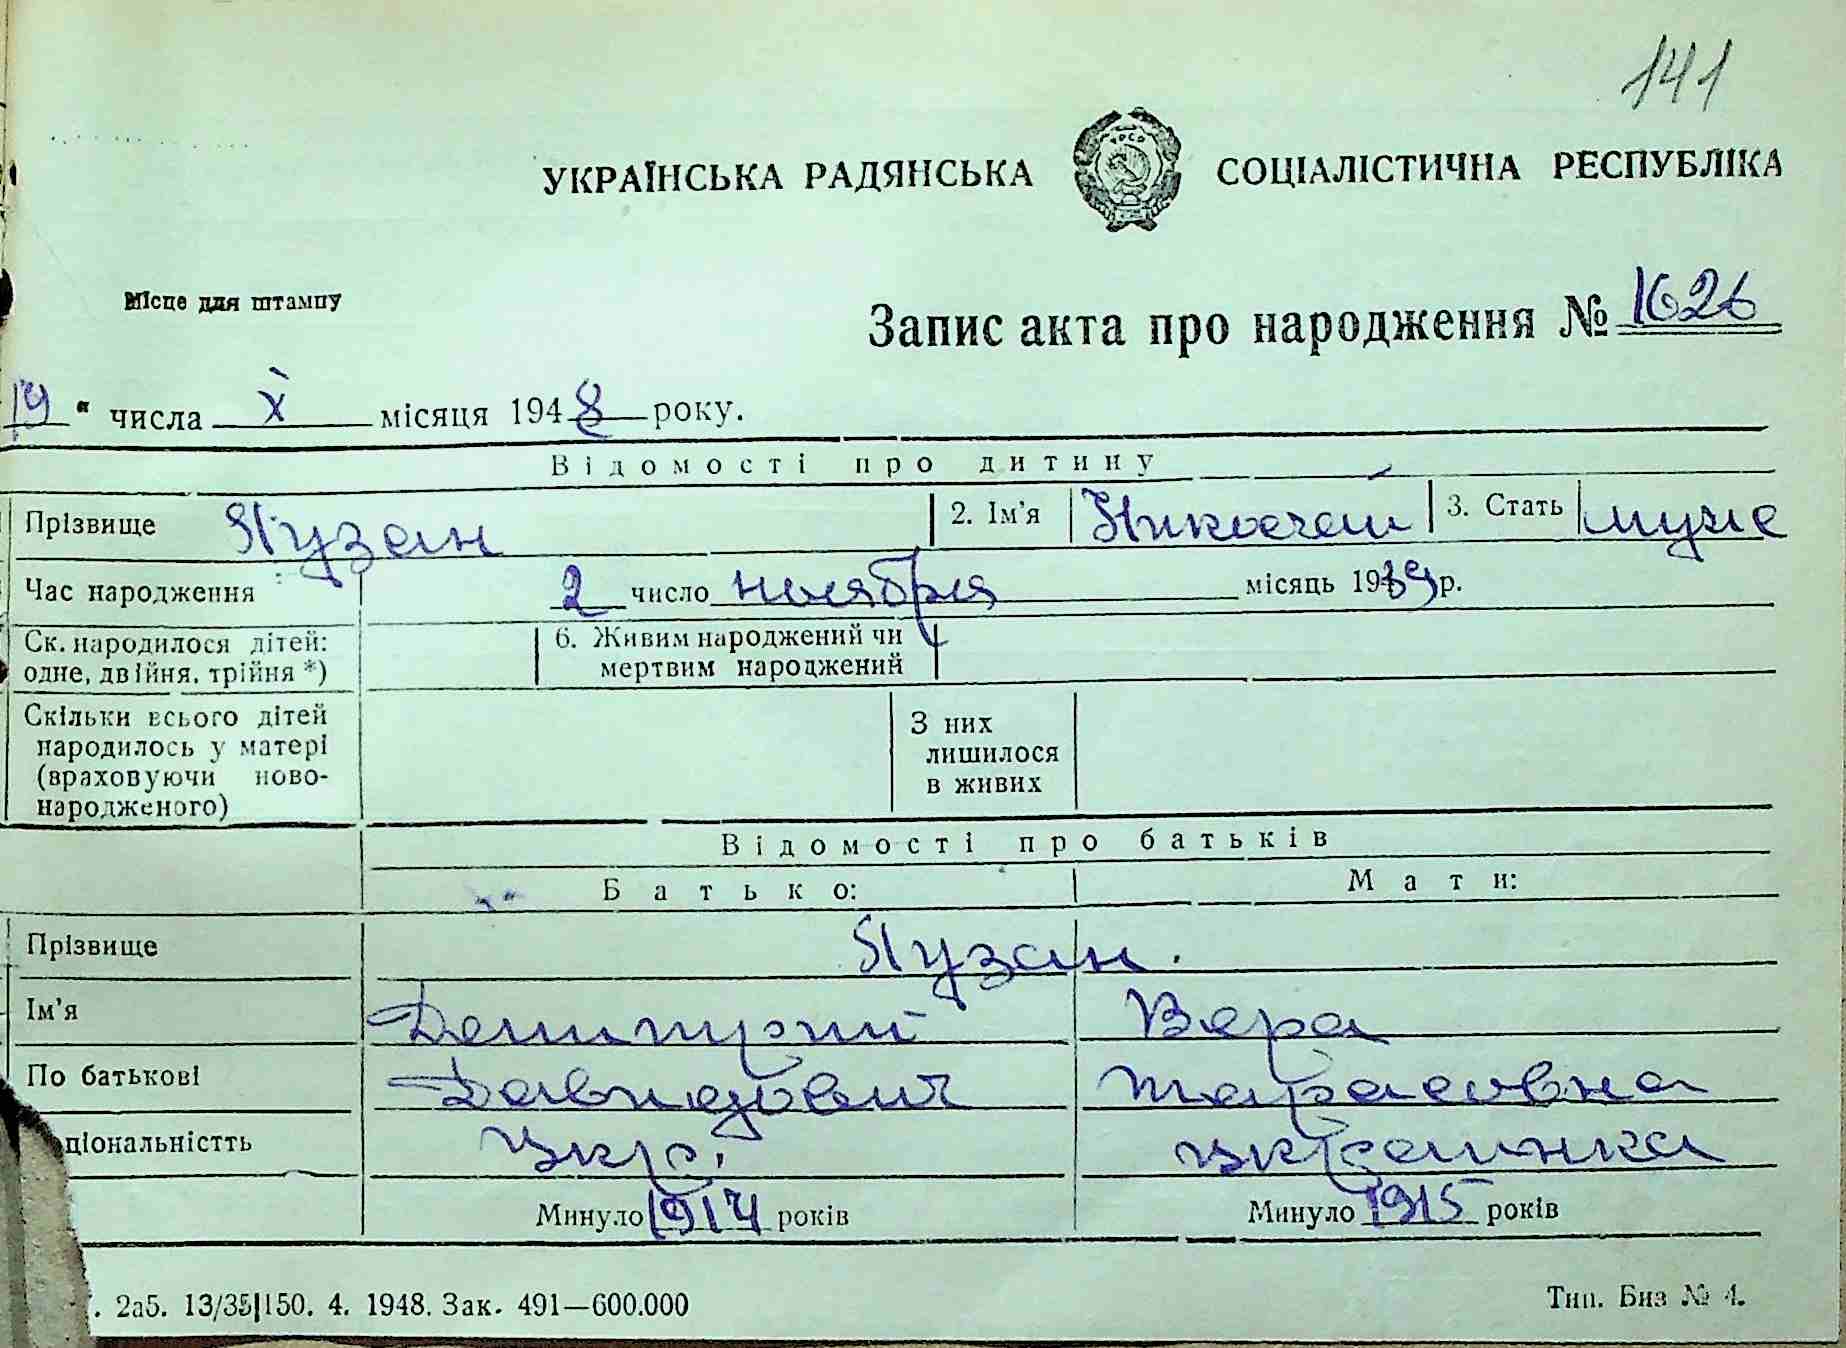 141
УКРАЇНСЬКА РАДЯНСЬКА СОЦІАЛІСТИЧНА РЕСПУБЛІКА
Місце для штампу
Запис акта про народження № 1626
19 " числа X місяця 1948 року.
Відомості про дитину
Прізвище Пузан 2. Ім'я Николай 3. Стать муже
Час народження 2 число ноября місяць 1939 р.
Ск. народилося дітей: 6. Живим народжений чи
одне, двійня, трійня *) мертвим народжений
Скільки всього дітей З них
народилось у матері лишилося
(враховуючи ново- в живих
народженого)
Відомості про батьків
Батько: Мати:
Прізвище Пузан.
Ім'я Демитрий Вера
По батькові Давидович Тарасовна
ціональністть Укр. украинка
Минуло 1914 років Минуло 1915 років
. 2а5. 13/35|150. 4. 1948. Зак. 491—600.000 Тип. Биз № 4.